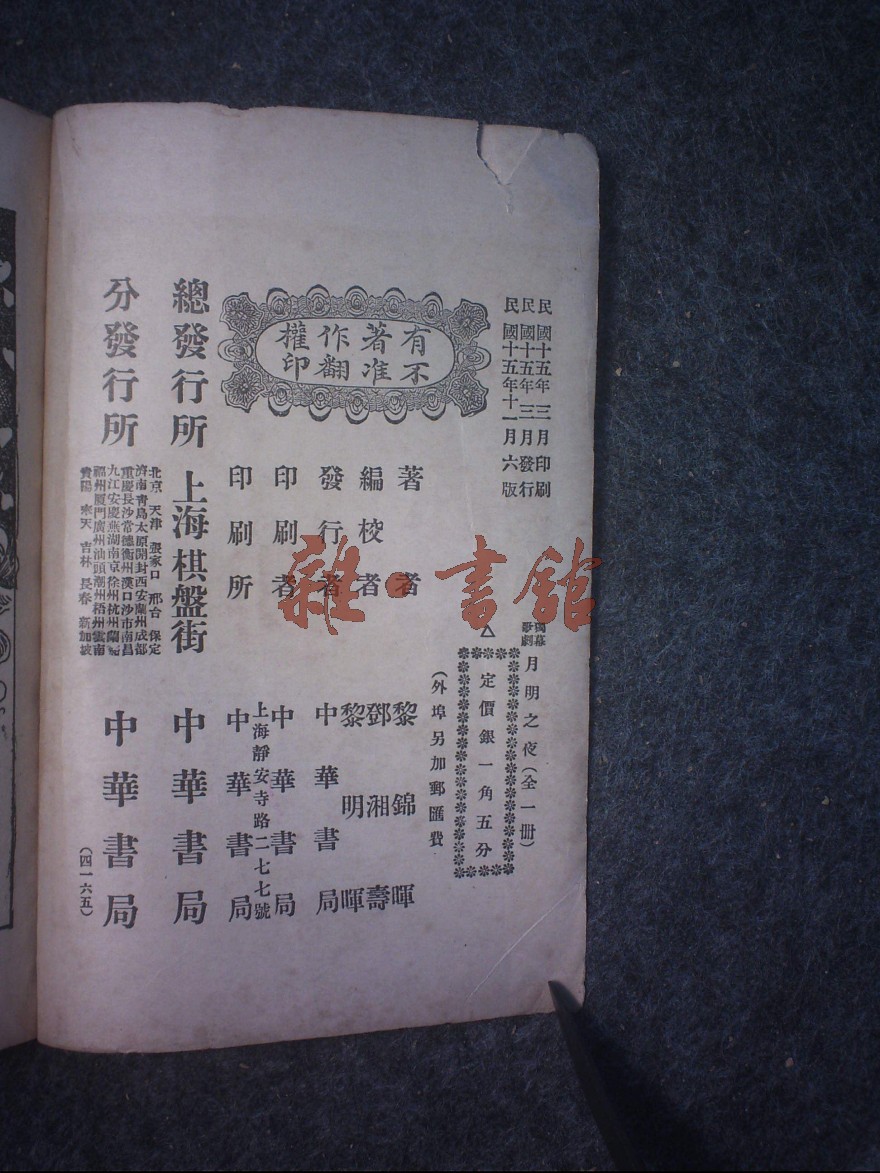 民國十五年三月印刷
民國十五年三月發行
民國十五年十一月六版
獨幕歌劇
月明之夜(全一冊)
定價銀一角五分
(外埠另加郵匯費)
有著作權
不准翻印
著者 黎錦暉
編校者 鄧湘壽 黎明暉
發行者 中華書局
印刷者 中華書局
印刷所 上海靜安寺路二七七號 中華書局
總發行所 上海棋盤街 中華書局
分發行所
北京 天津 張家口 邢台 保定
濟南青島太原開封西安蘭州成都
重慶長沙常德衡州漢口沙市南昌
九江安慶蕪湖南京徐州杭州蘭谿
福州厦門廣州汕頭潮州梧州雲南
貴陽 奉天 吉林 長春 新加坡
中華書局
(四一六五)
雜·書館